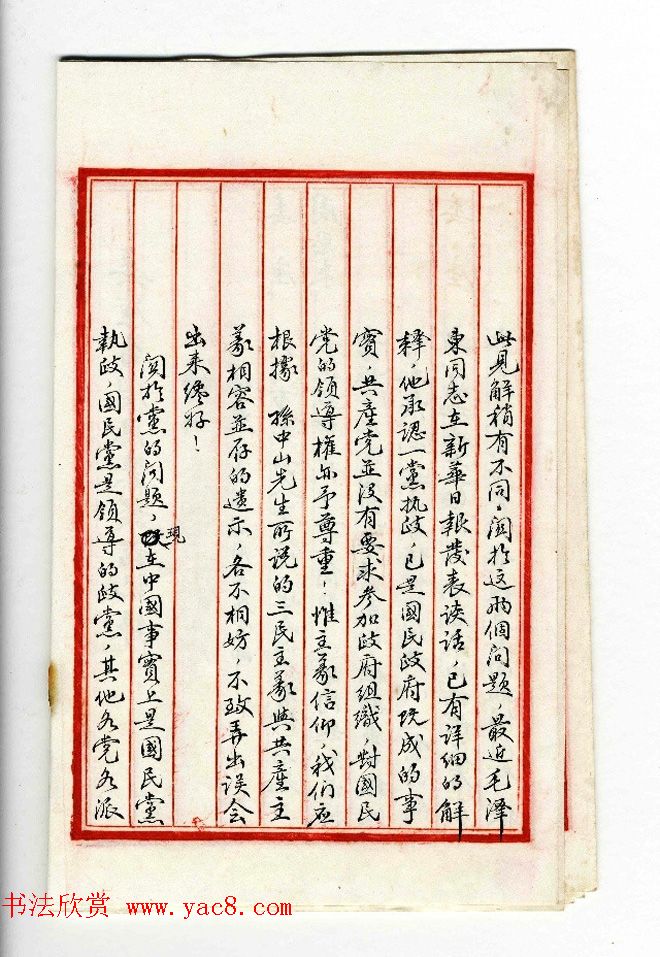 此見解稍有不同。関於这兩個问题，最近毛澤
東同志在新華日報發表谈话，已有详细的解
释，他承認一黨执政，已是國民政府既成的事
實，共產党並没有要求参加政府组織，對國民
党的領導權亦予尊重！惟主義信仰，我们应
根據 孫中山先生所说的三民主義與共產主
義相容並存的遺示，各不相妨，不致弄出误会
出来纔好！
関於黨的问题，現在中國事實上是國民黨
執政，國民黨是領導的政黨，其他各党各派
书法欣赏 www.yac8.com